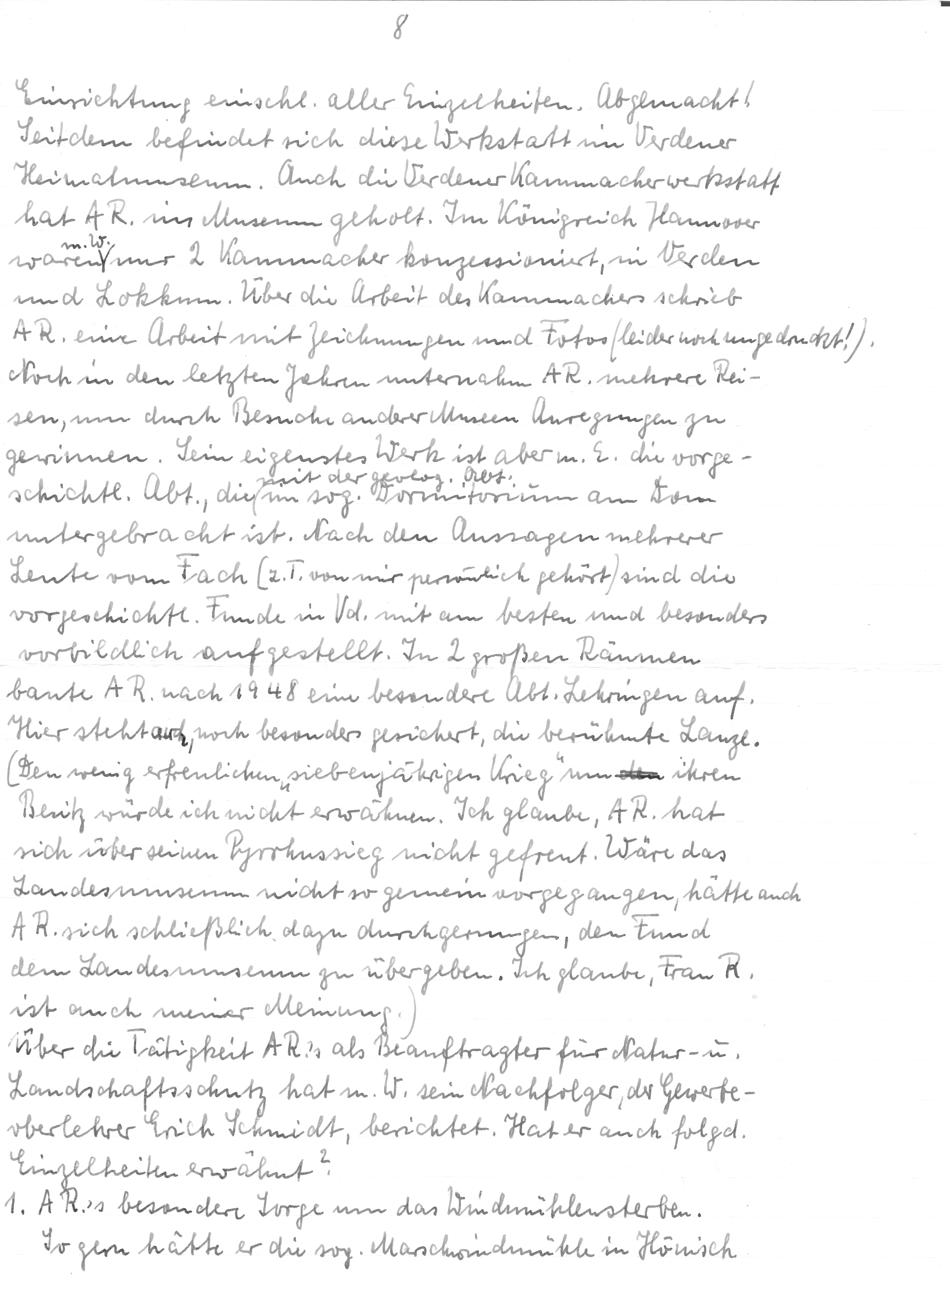 8
Einrichtung einschl. aller Einzelheiten. Abgemacht!
Seitdem befindet sich diese Werkstatt im Verdener
Heimatmuseum. Auch die Verdener Kammacherwerkstatt
hat AR. ins Museum geholt. Im Königreich Hannover
waren m. W. nur 2 Kammacher konzessioniert, in Verden
und Lokkum. Über die Arbeit des Kammachers schrieb
AR. eine Arbeit mit Zeichnungen und Fotos (leider noch ungedruckt!).
Noch in den letzten Jahren unternahm AR. mehrere Rei-
sen, um durch Besuche anderer Museen Anregungen zu
gewinnen. Sein eigenstes Werk ist aber m. E. die vorge-
schichtl. Abt., die mit der geolog. Abt. im sog. Dormitorium am Dom
untergebracht ist. Nach den Aussagen mehrerer
Leute vom Fach (z.T. von mir persönlich gehört) sind die
vorgeschichtl. Funde in Vd. mit am besten und besonders
vorbildlich aufgestellt. In 2 großen Räumen
baute AR. nach 1948 eine besondere Abt. Lehringen auf.
Hier steht auch, noch besonders gesichert, die berühmte Lanze.
(Den wenig erfreulichen „siebenjährigen Krieg" um den ihren
Besitz würde ich nicht erwähnen. Ich glaube, AR. hat
sich über seinen Pyrrhussieg nicht gefreut. Wäre das
Landesmuseum nicht so gemein vorgegangen, hätte auch
AR. sich schließlich dazu durchgerungen, den Fund
dem Landesmuseum zu übergeben. Ich glaube, Frau R.
ist auch meiner Meinung.)
Über die Tätigkeit AR.'s als Beauftragter für Natur- u.
Landschaftsschutz hat m. W. sein Nachfolger, der Gewerbe-
oberlehrer Erich Schmidt, berichtet. Hat er auch folgd.
Einzelheiten erwähnt?:
1. AR.'s besondere Sorge um das Windmühlensterben.
So gern hätte er die sog. Marschwindmühle in Hönisch